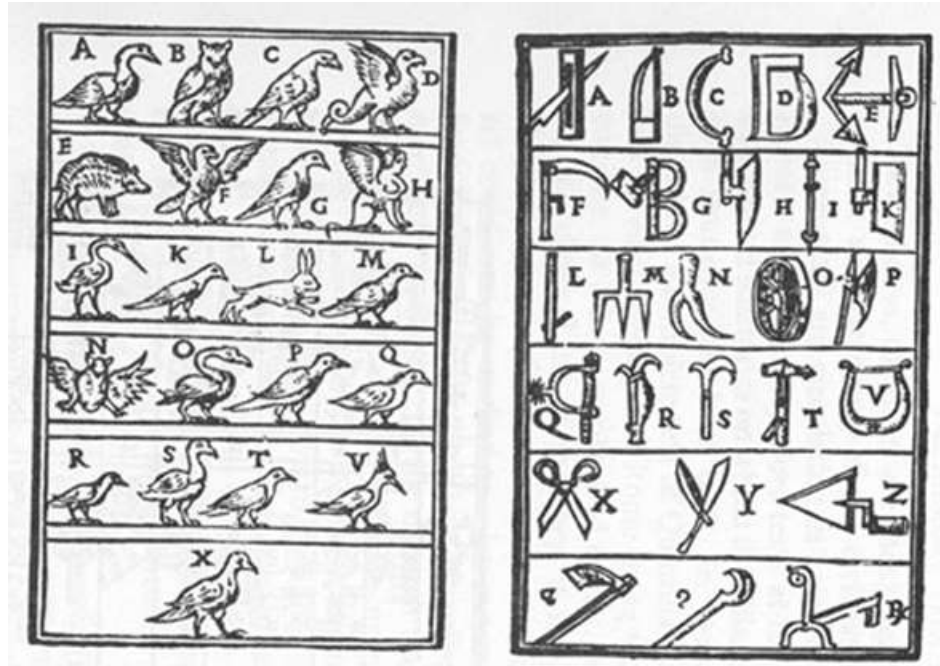 A B C D
E F G H
I K L M
N O P Q
R S T V
X
A B C D E
F G H I K
L M N O P
Q R S T V
X Y Z
? ℞